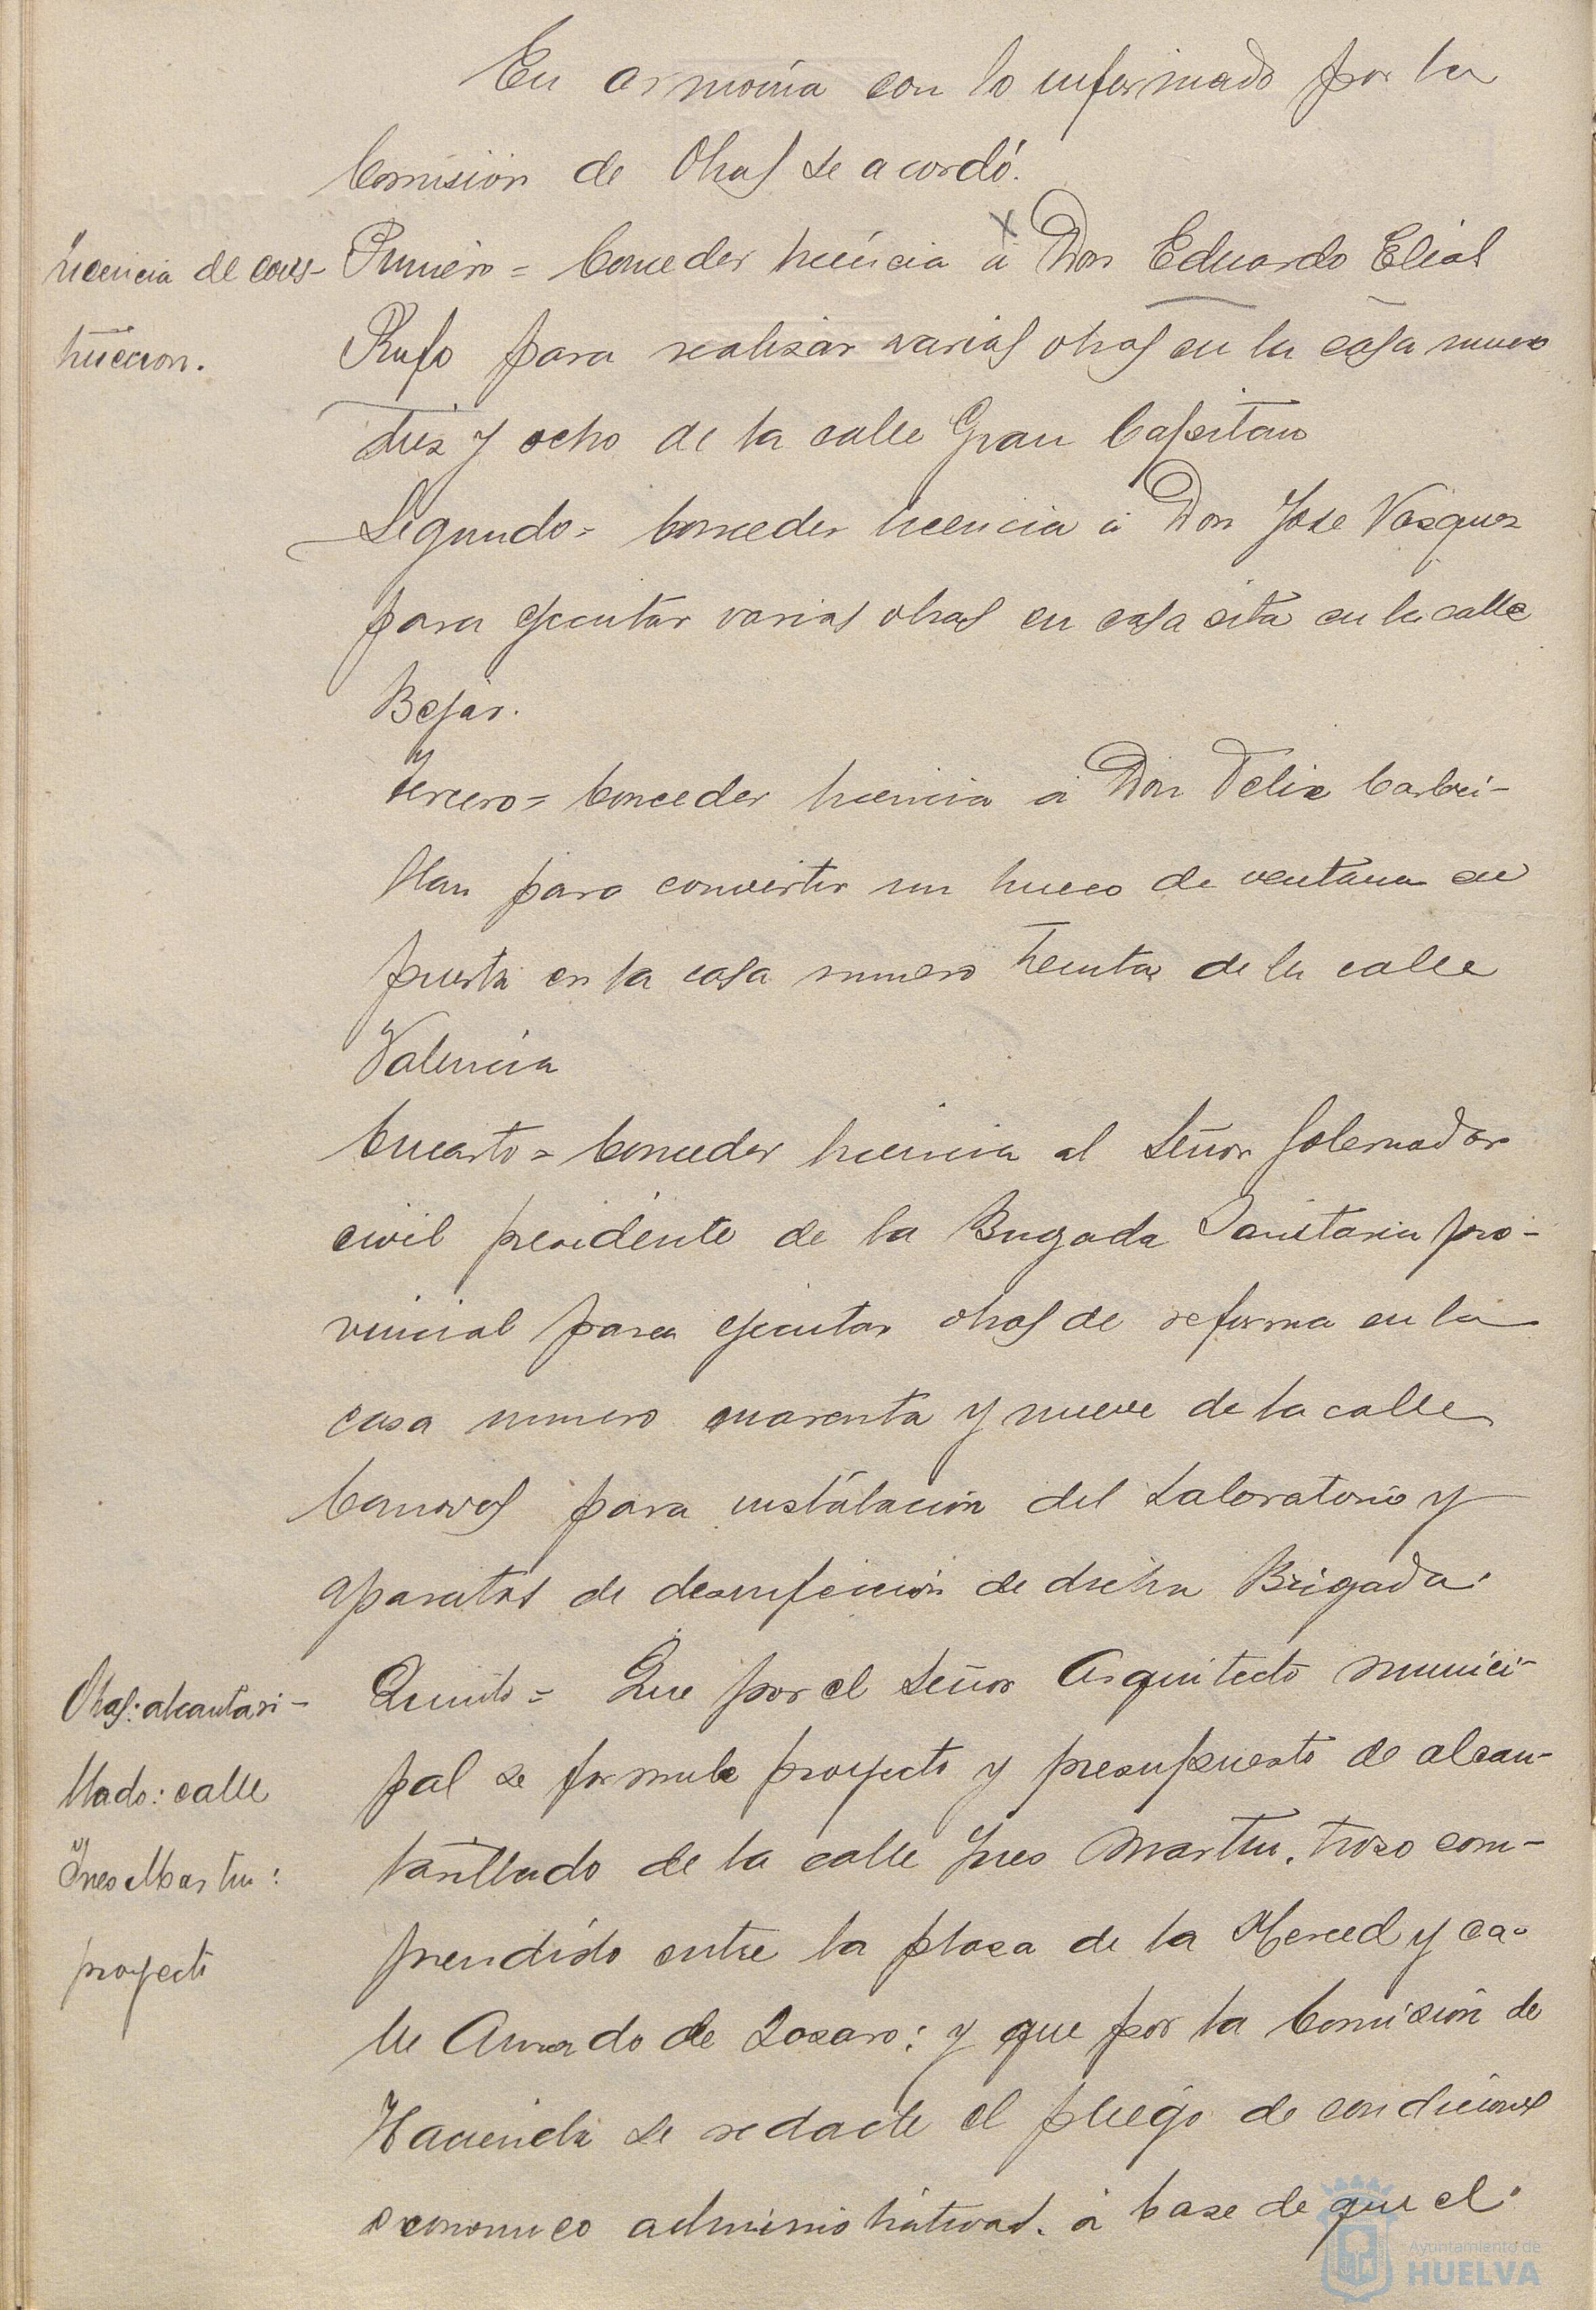 En armonia con lo informado por la
Comision de Obras se acordó.
Licencia de cons-
truccion.
Primero = Conceder licéncia á Don Eduardo Elias
Rufo para realizar varias obras en la casa numero
diez y ocho de la calle Gran Capitan
Segundo = Conceder licencia á Don Jose Vazquez
para ejecutar varias obras en casa sita en la calle
Bejar.
Tercero = Conceder licencia á Don Felix Carbri-
llan para convertir un hueco de ventana en
puerta en la casa numero treinta de la calle
Valencia
Cuarto = Conceder licencia al Señor Gobernador
civil presidente de la Brigada Sanitaria pro-
vincial para ejecutar obras de reforma en la
casa numero cuarenta y nueve de la calle
Canovas para instalacion del Laboratorio y
aparatos de desinfeccion de dicha Brigada.
Obras: alcantari-
llado: calle
Ines Martin:
proyecto
Quinto = Que por el Señor Arquitecto munici-
pal se formule proyecto y presupuesto de alcan-
tarillado de la calle Ines Martin, trozo com-
prendido entre la plaza de la Merced y ca-
lle Amado de Lazaro: y que por la Comision de
Hacienda se redacte el pliego de condiciones
economico administrativas, á base de que el
Ayuntamiento de
HUELVA